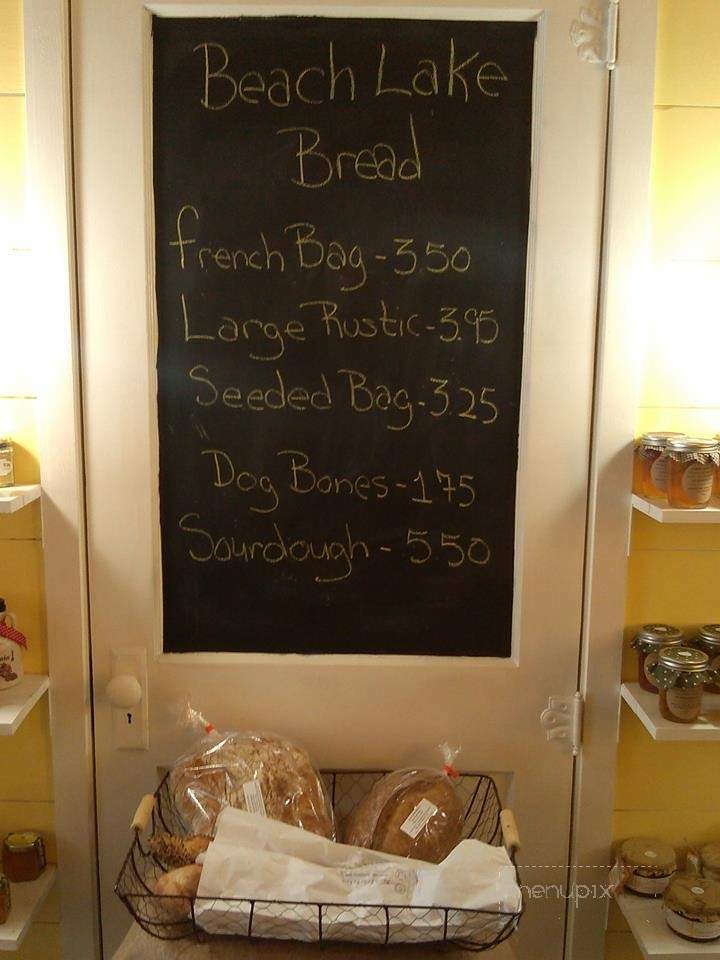 Beach Lake
Bread
french Bag - 3.50
Large Rustic - 3.95
Seeded Bag - 3.25
Dog Bones - 1.75
Sourdough - 5.50
menupix